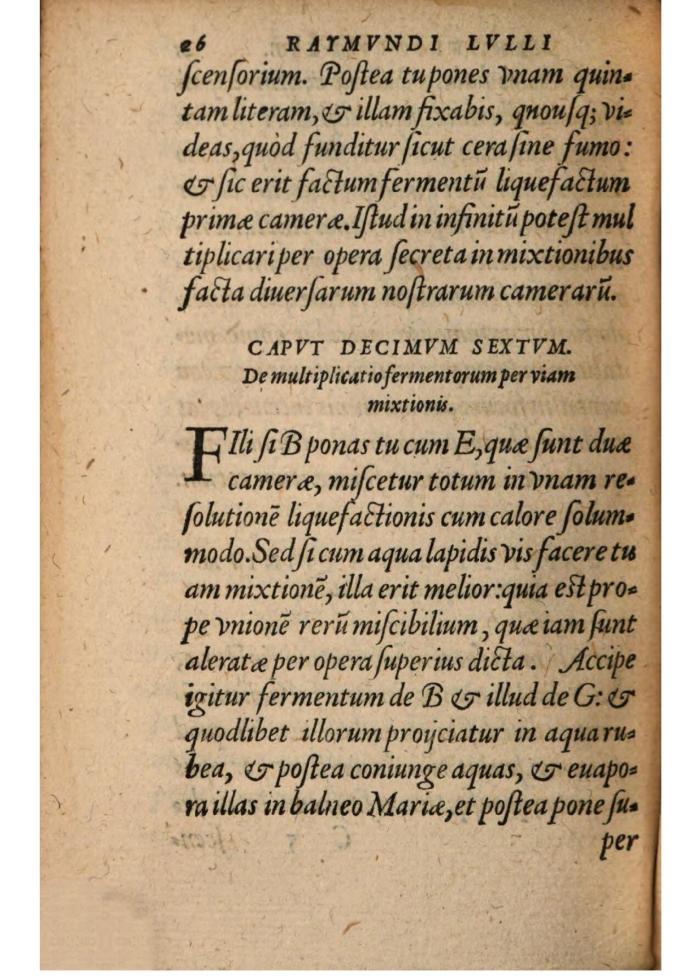 26 RAYMVNDI LVLLI
ſcenſorium. Poſtea tu pones vnam quin-
tam literam, & illam fixabis, qnouſq; vi-
deas, quòd funditur ſicut cera ſine fumo:
& ſic erit factum fermentū liquefactum
primæ cameræ. Iſtud in infinitū poteſt mul
tiplicari per opera ſecreta in mixtionibus
facta diuerſarum noſtrarum camerarū.
CAPVT DECIMVM SEXTVM.
De multiplicatio fermentorum per viam
mixtionis.
FIli ſi B ponas tu cum E, quæ ſunt duæ
cameræ, miſcetur totum in vnam re-
ſolutionē liquefactionis cum calore ſolum-
modo. Sed ſi cum aqua lapidis vis facere tu
am mixtionē, illa erit melior: quia eſt pro-
pe vnionē rerū miſcibilium, quæ iam ſunt
aleratæ per opera ſuperius dicta. Accipe
igitur fermentum de B & illud de G: &
quodlibet illorum proijciatur in aqua ru-
bea, & poſtea coniunge aquas, & euapo-
ra illas in balneo Mariæ, et poſtea pone ſu-
per